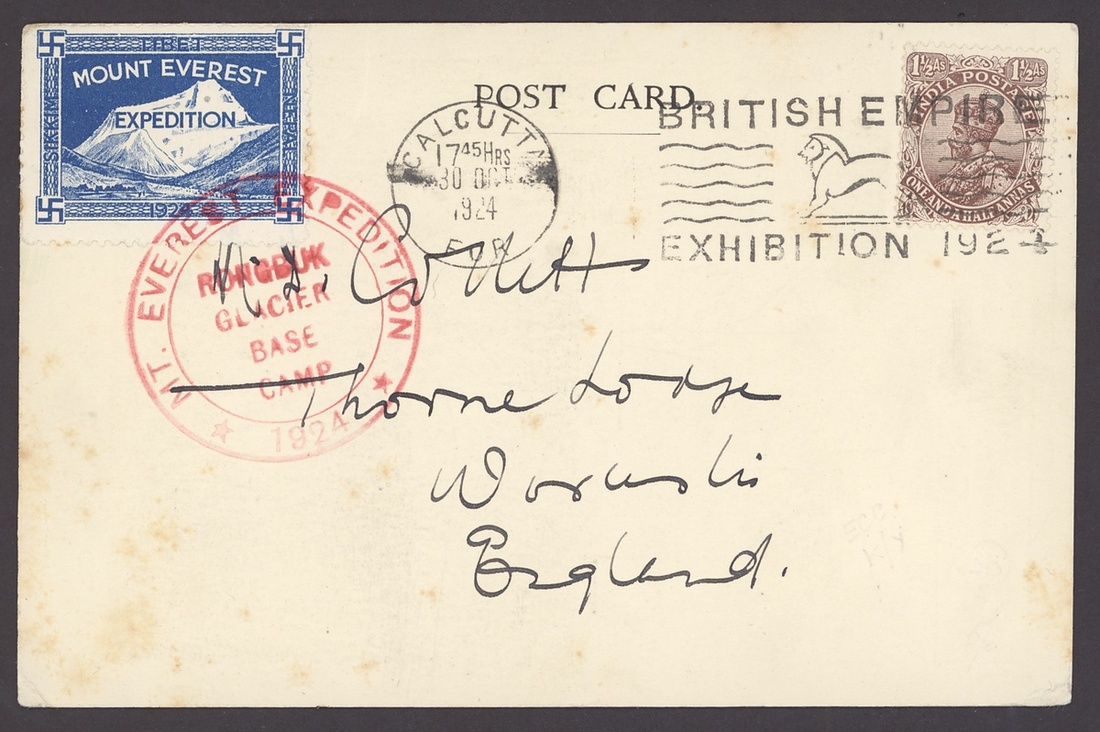 TIBET
MOUNT EVEREST
EXPEDITION
1924
POST CARD.
CALCUTTA
17 45 HRS
30 OCT
1924
BRITISH EMPIRE
EXHIBITION 1924
1½ As 1½ As
INDIA POSTAGE
ONE AND A HALF ANNAS
MT. EVEREST EXPEDITION
RONGBUK
GLACIER
BASE
CAMP
1924
Thorne Lodge
Worcester
England.